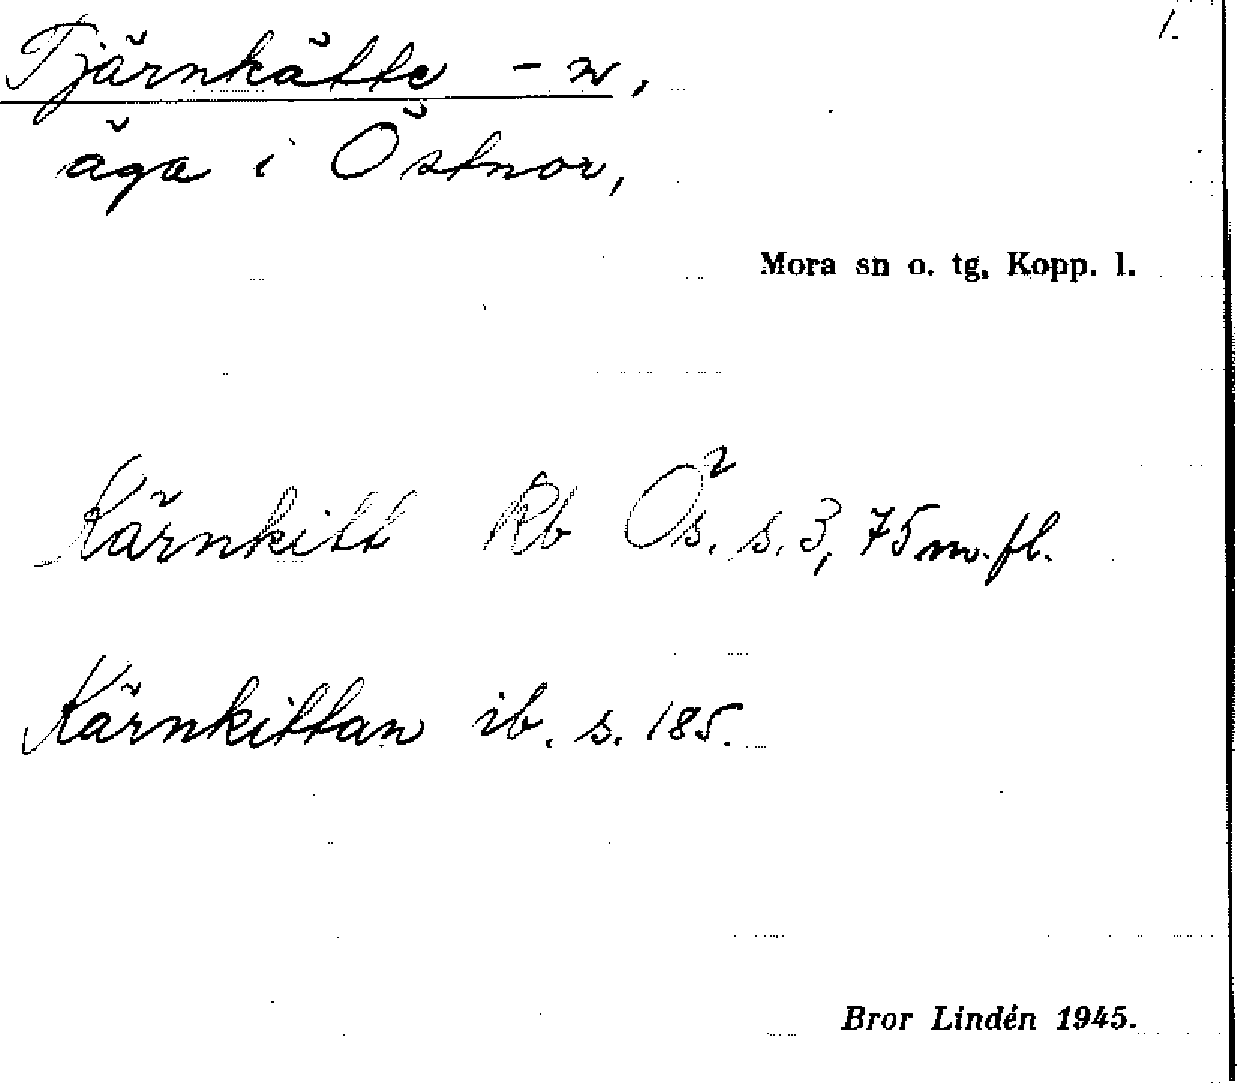 1.
Tjärnkätte -n,
äga i Östnor,
Mora sn o. tg, Kopp. l.
Kärnkitt Rb Ös. s. 3, 75 m. fl.
Kärnkittan ib. s. 185.
Bror Lindén 1945.